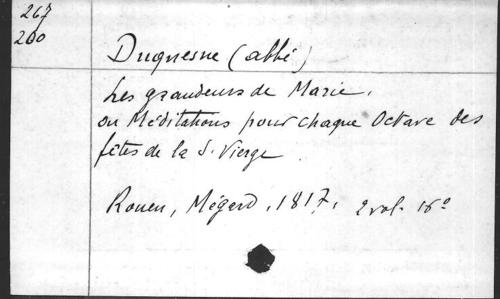 267
200
Duquesne (abbé)
Les grandeurs de Marie,
ou Méditations pour chaque Octave des
fêtes de la S. Vierge
Rouen, Mégard, 1817, 2 vol. 16°